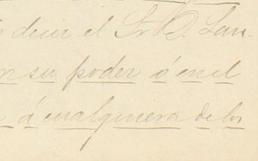 decir el Sr. D. Lau-
en su poder ó en el
á cualquiera de los